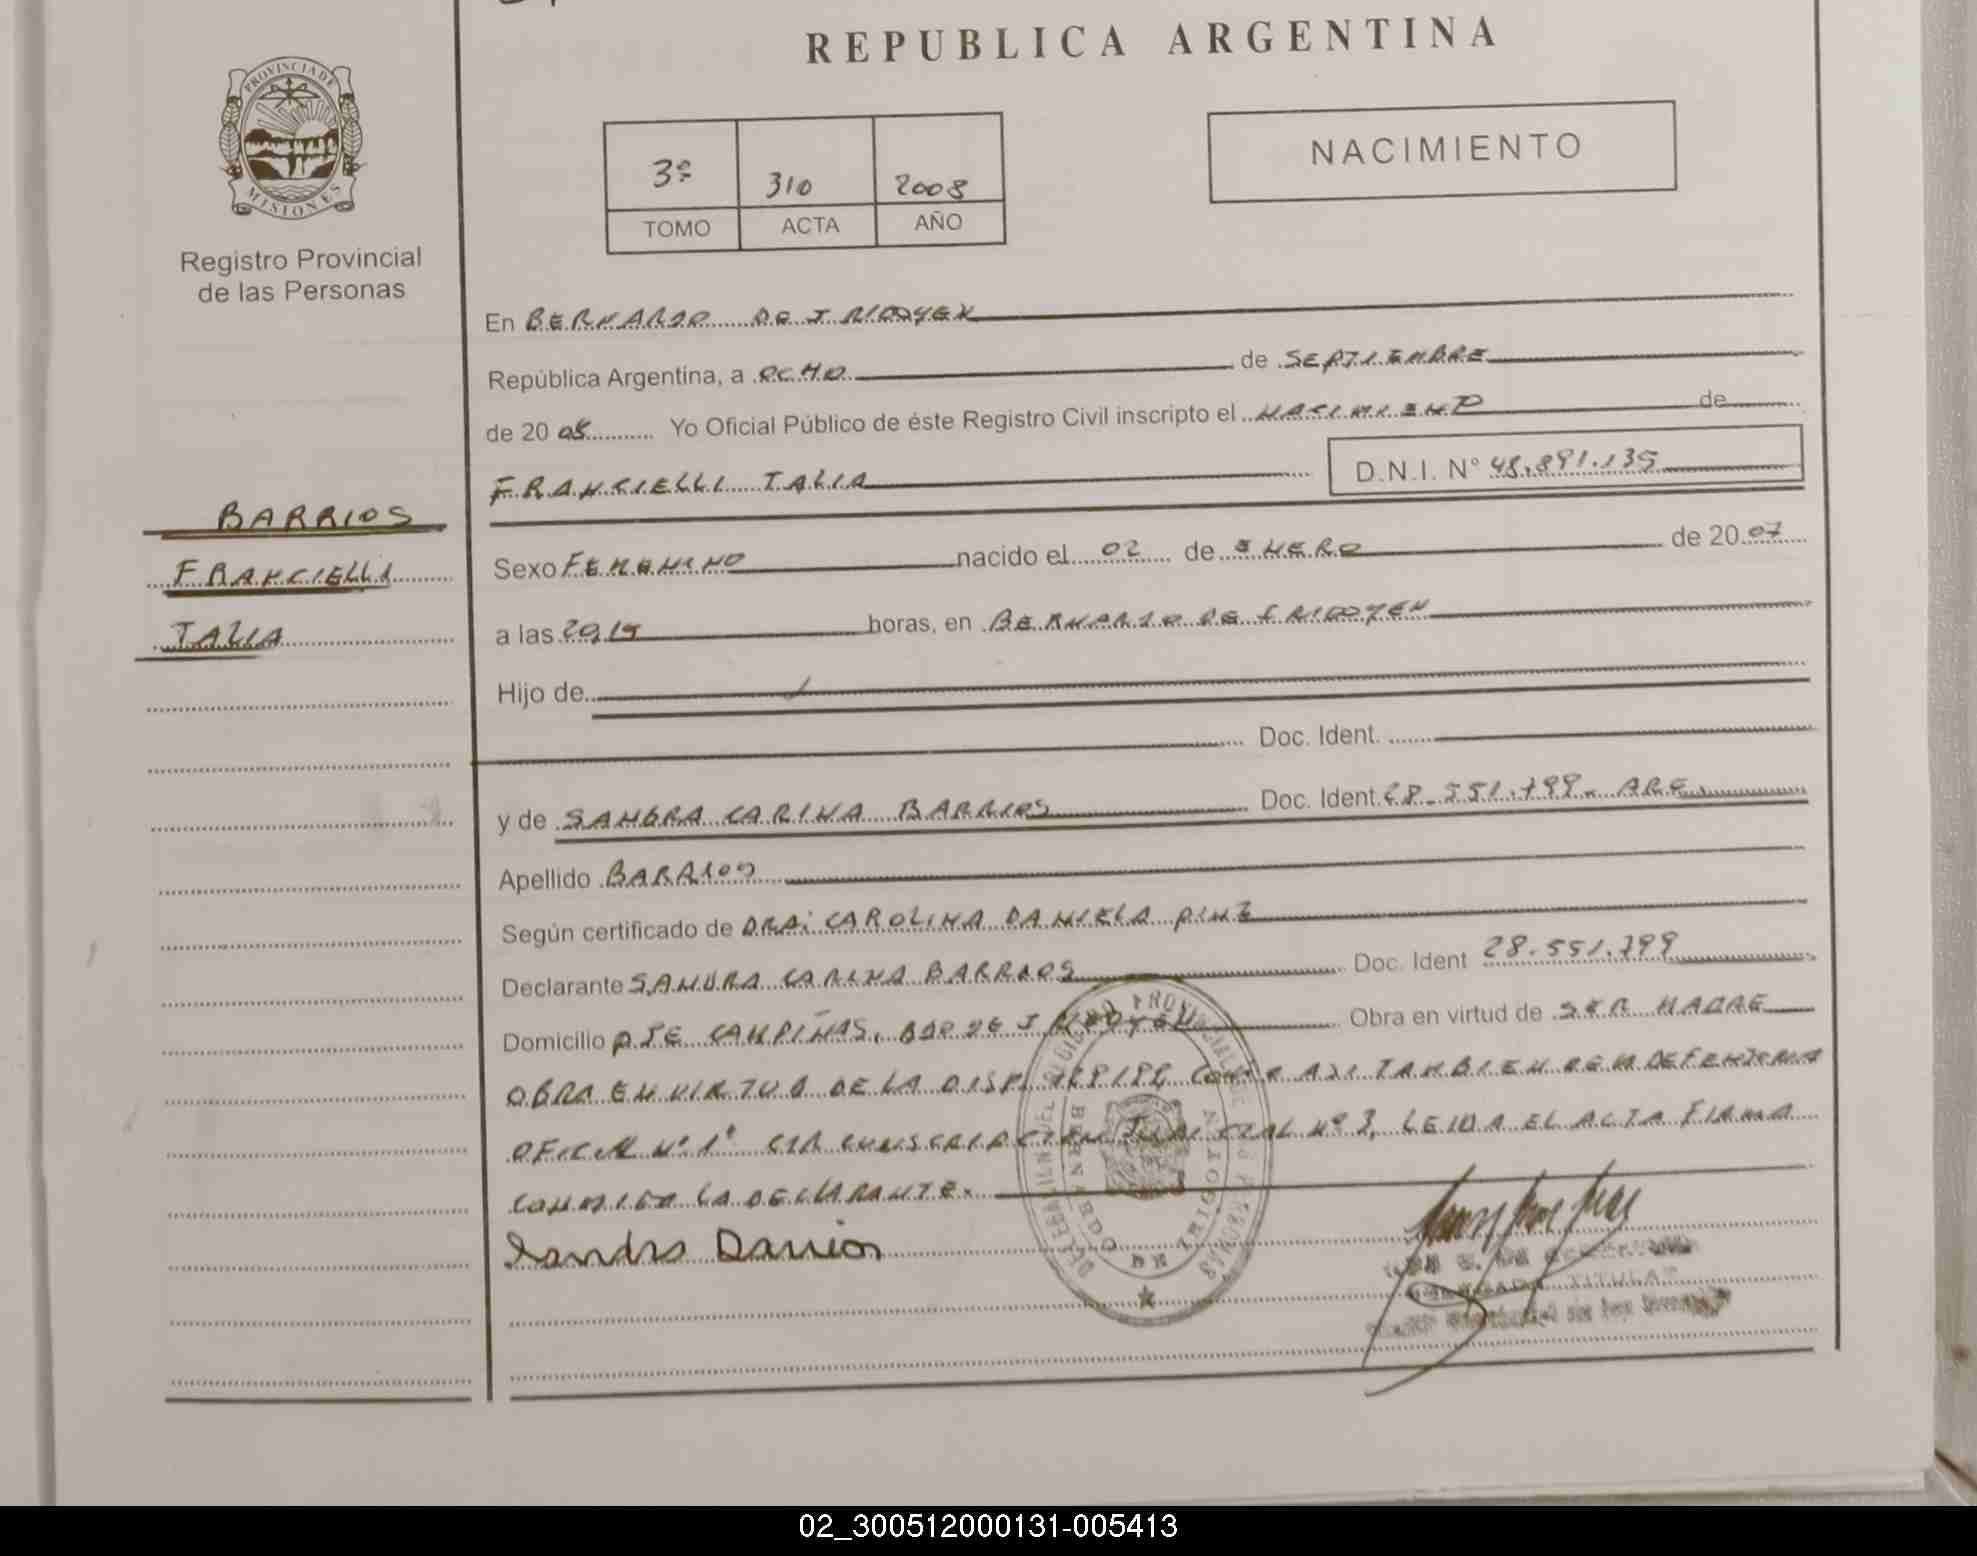 REPUBLICA ARGENTINA
PROVINCIA DE
MISIONES
Registro Provincial
de las Personas
3º 310 2008
TOMO ACTA AÑO
NACIMIENTO
En BERNARDO DE IRIGOYEN
República Argentina, a OCHO de SEPTIEMBRE
de 20 08 Yo Oficial Público de éste Registro Civil inscripto el NACIMIENTO de
FRANCIELLI TALIA D.N.I. N° 48.891.135
BARRIOS
FRANCIELLI
TALIA
Sexo FEMENINO nacido el 02 de ENERO de 20 07
a las 20,15 horas, en BERNARDO DE IRIGOYEN
Hijo de
Doc. Ident.
y de SANDRA CARINA BARRIOS Doc. Ident 28.551.799. ARG
Apellido BARRIOS
Según certificado de DRA: CAROLINA DANIELA PINZ
Declarante SANDRA CARINA BARRIOS Doc. Ident 28.551.799
Domicilio PJE CAMPIÑAS, BDO DE IRIGOYEN Obra en virtud de SER MADRE
OBRA EN VIRTUD DE LA DISP. COMO ASI TAMBIEN DEFENSORIA
OFICIAL Nº 1º CIRCUNSCRIPCION JUDICIAL Nº 3, LEIDA EL ACTA FIRMA
CONMIGO LA DECLARANTE.
Sandra Barrios
BERNARDO DE IRIGOYEN
TITULAR
02_300512000131-005413